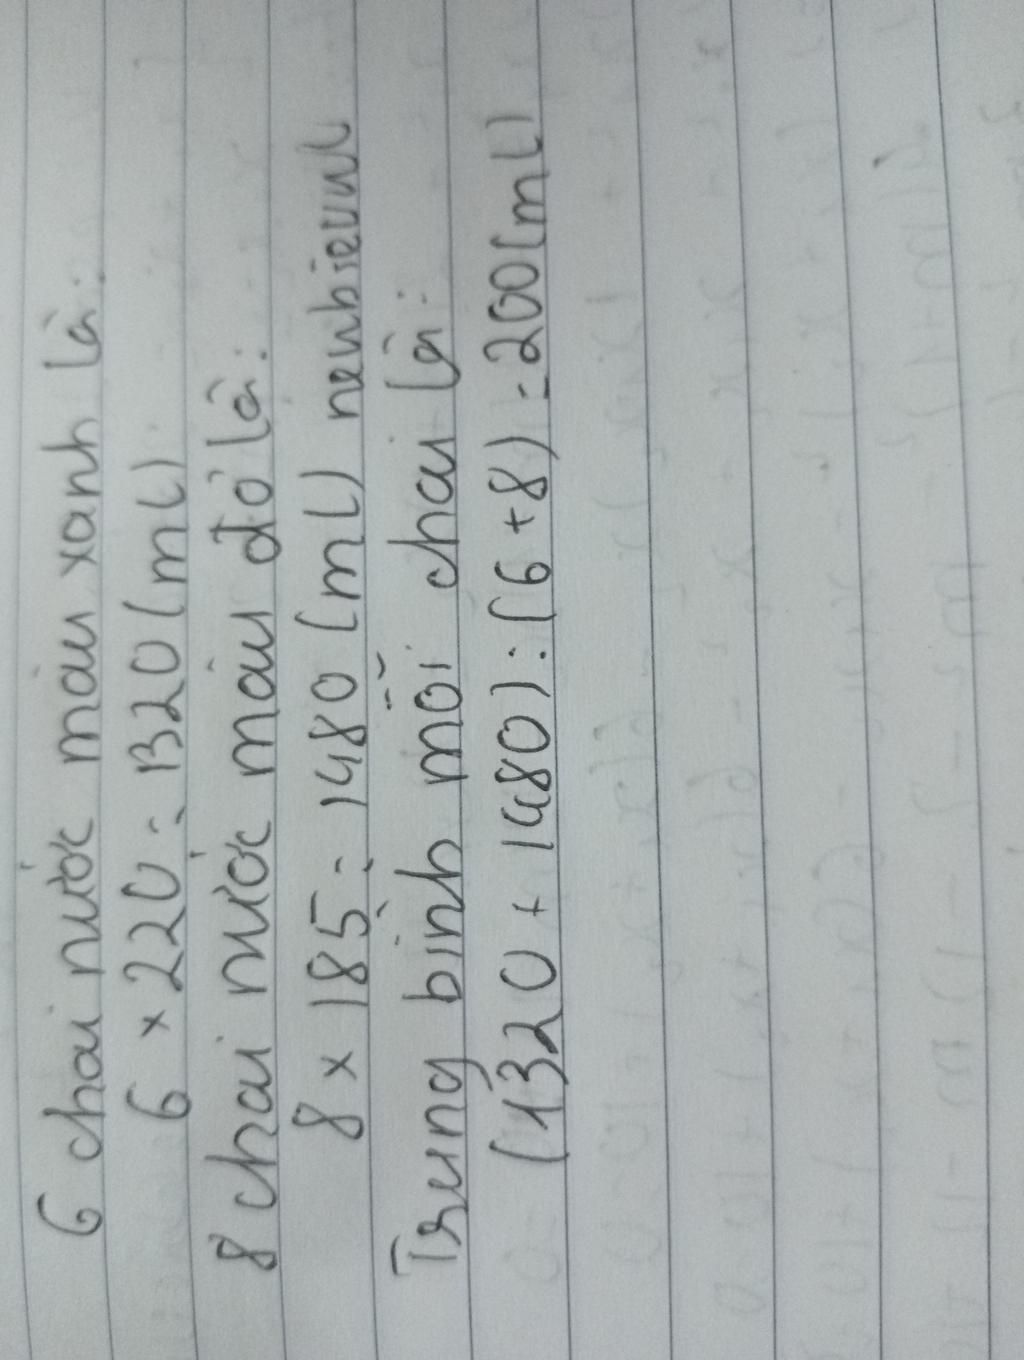 6 chai nước màu xanh là:
6 x 220 = 1320 (ml)
8 chai nước màu đỏ là:
8 x 185 = 1480 (ml)
Trung bình mỗi chai là:
(1320 + 1480) : (6 + 8) = 200 (ml)